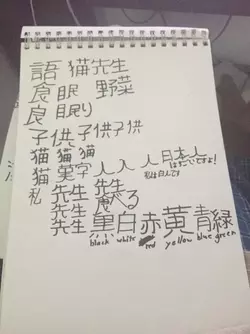 語 猫 先生
良 眠 野菜
良 眠り
子供 子供 子供
猫 猫 猫
猫 漢字 人 入 人 日本人
私 先生 先生
先生 食べる
先生 黒 白 赤 黄 青 緑
black white red yellow blue green